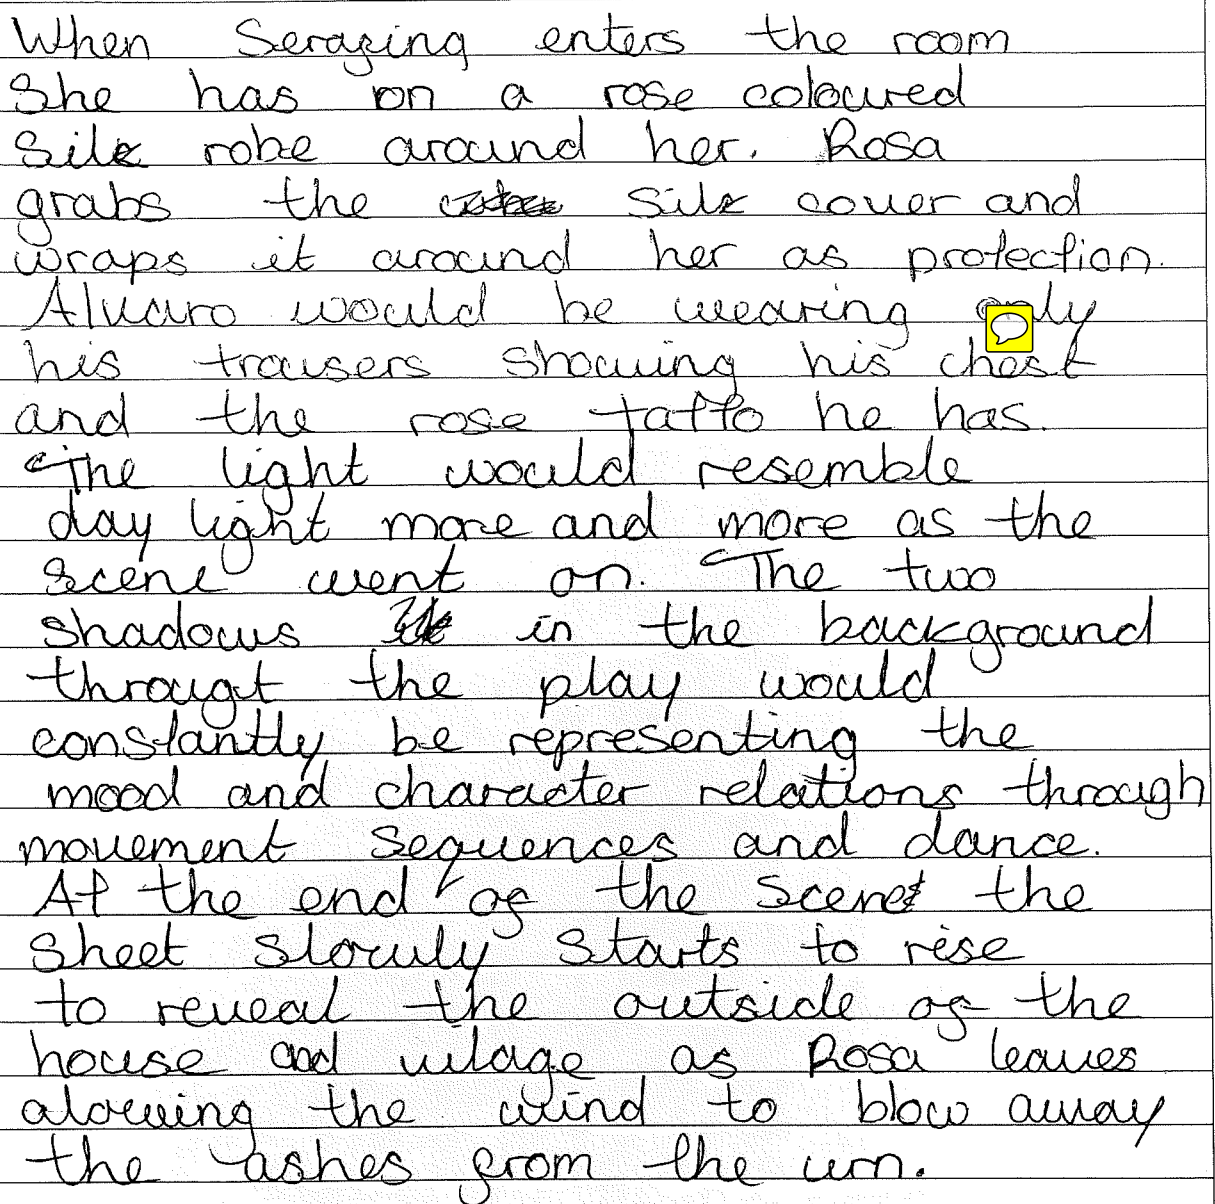 When Serazing enters the room
She has on a rose coloured
Silk robe around her. Rosa
grabs the Silk cover and
wraps it around her as protection.
Alvaro would be wearing only
his trousers showing his chest
and the rose tatto he has.
The light would resemble
day light more and more as the
scene went on. The two
shadows in the background
througt the play would
constantly be representing the
mood and character relations through
movement sequences and dance.
At the end of the scene the
sheet slowly starts to rise
to reveal the outside of the
house and vilage as Rosa leaves
alowing the wind to blow away
the ashes from the urn.